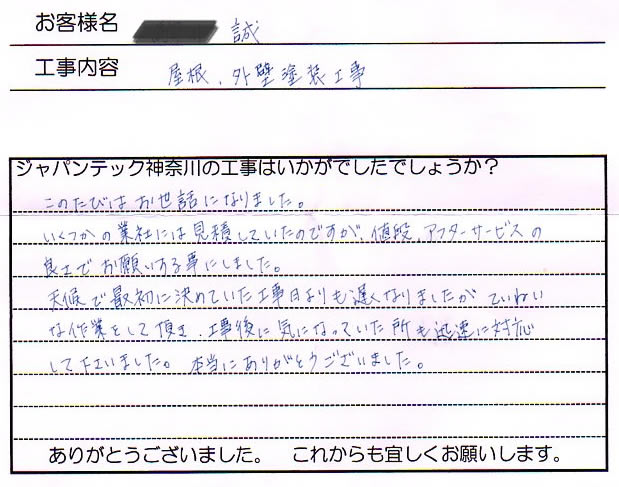 お客様名 誠
工事内容 屋根、外壁塗装工事
ジャパンテック神奈川の工事はいかがでしたでしょうか？
このたびはお世話になりました。
いくつかの業社には見積していたのですが、値段、アフターサービスの
良さでお願いする事にしました。
天候で最初に決めていた工事日よりも遅くなりましたがていねい
な作業をして頂き、工事後に気になっていた所も迅速に対応
して下さいました。本当にありがとうございました。
ありがとうございました。 これからも宜しくお願いします。